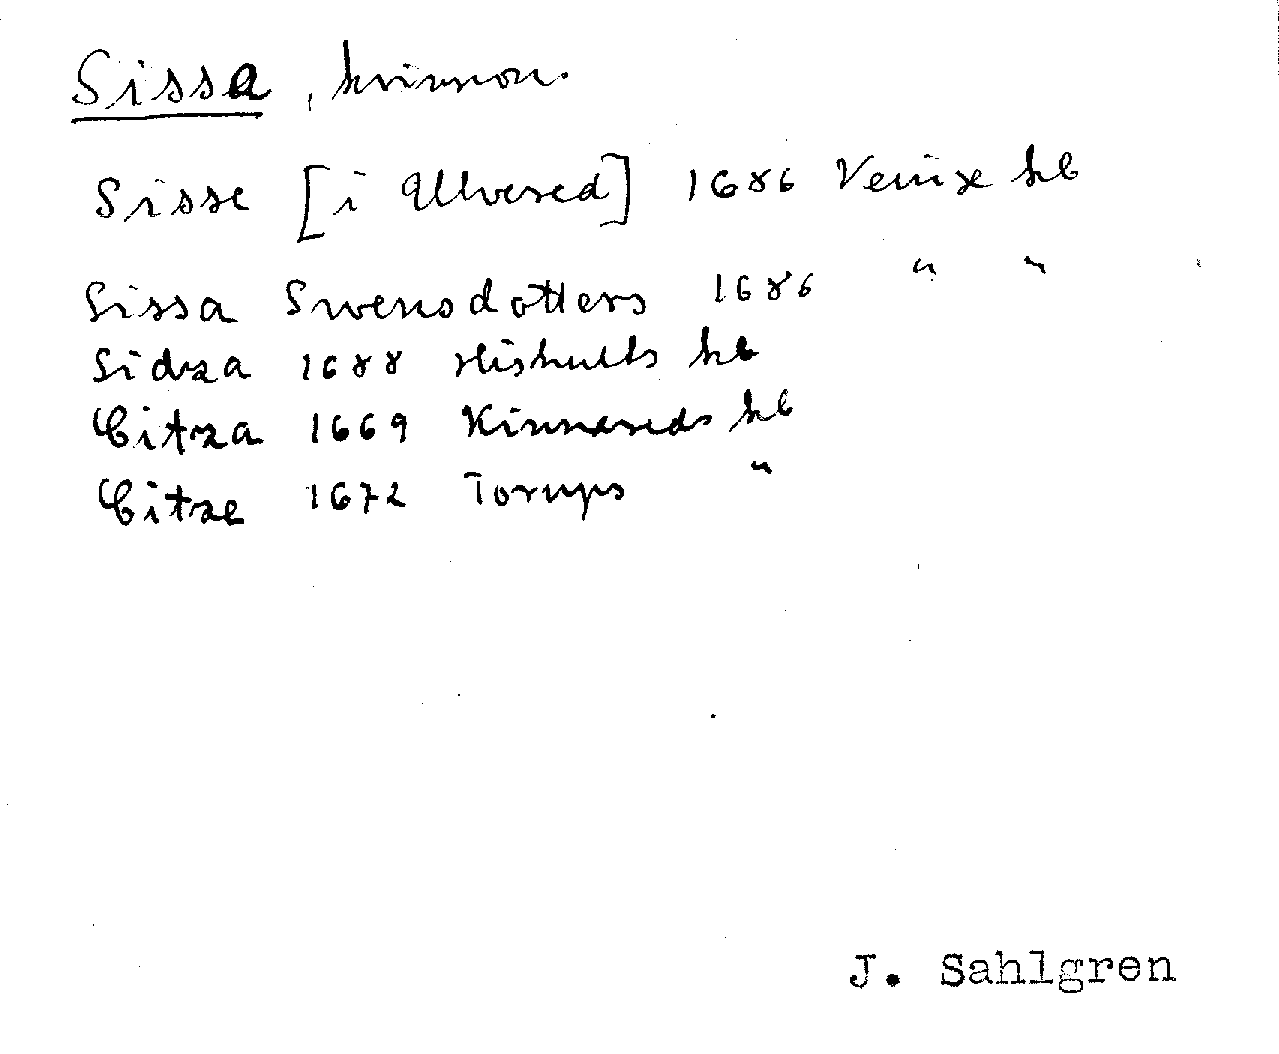 Sissa, kvinnon.
Sisse [i Ullvered] 1686 Veinge kb
Sissa Swensdotters 1686 " "
Sidza 1688 Hishults kb
Citza 1669 Kinnareds kb
Citze 1672 Torups "
J. Sahlgren